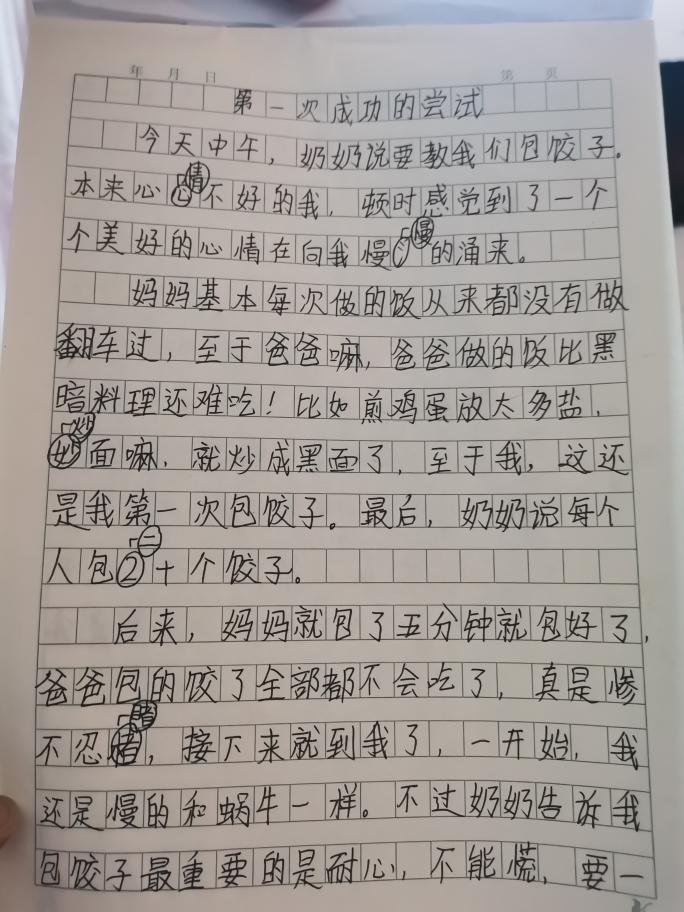 年 月 日 第 页
第一次成功的尝试
今天中午，奶奶说要教我们包饺子。
本来心情不好的我，顿时感觉到了一个
个美好的心情在向我慢慢的涌来。
妈妈基本每次做的饭从来都没有做
翻车过，至于爸爸嘛，爸爸做的饭比黑
暗料理还难吃！比如煎鸡蛋放太多盐，
炒面嘛，就炒成黑面了，至于我，这还
是我第一次包饺子。最后，奶奶说每个
人包二十个饺子。
后来，妈妈就包了五分钟就包好了，
爸爸包的饺了全部都不会吃了，真是惨
不忍睹，接下来就到我了，一开始，我
还是慢的和蜗牛一样。不过奶奶告诉我
包饺子最重要的是耐心，不能慌，要一